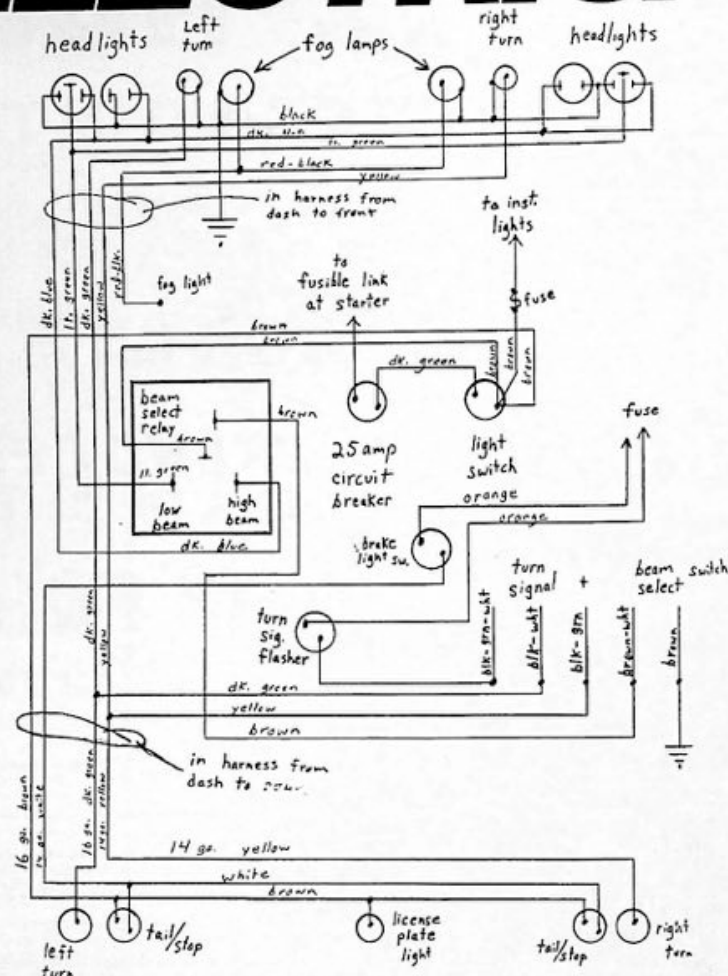 head lights
Left
turn
fog lamps
right
turn
headlights
black
dk. blue
lt. green
red-black
yellow
in harness from
dash to front
to inst.
lights
dk. blue
lt. green
dk. green
yellow
red-blk.
fog light
to
fusible link
at starter
fuse
brown
brown
dk. green
brown
brown
brown
beam
select
relay
brown
brown
lt. green
low
beam
high
beam
dk. blue
25 amp
circuit
breaker
light
switch
fuse
orange
orange
brake
light sw.
turn
signal +
beam switch
select
turn
sig.
flasher
blk-grn-wht
blk-wht
blk-grn
brown-wht
brown
dk. green
yellow
dk. green
yellow
brown
in harness from
dash to
16 ga. brown
14 ga. white
16 ga. dk. green
14 ga. yellow
14 ga. yellow
white
brown
left
turn
tail/stop
license
plate
light
tail/stop
right
turn